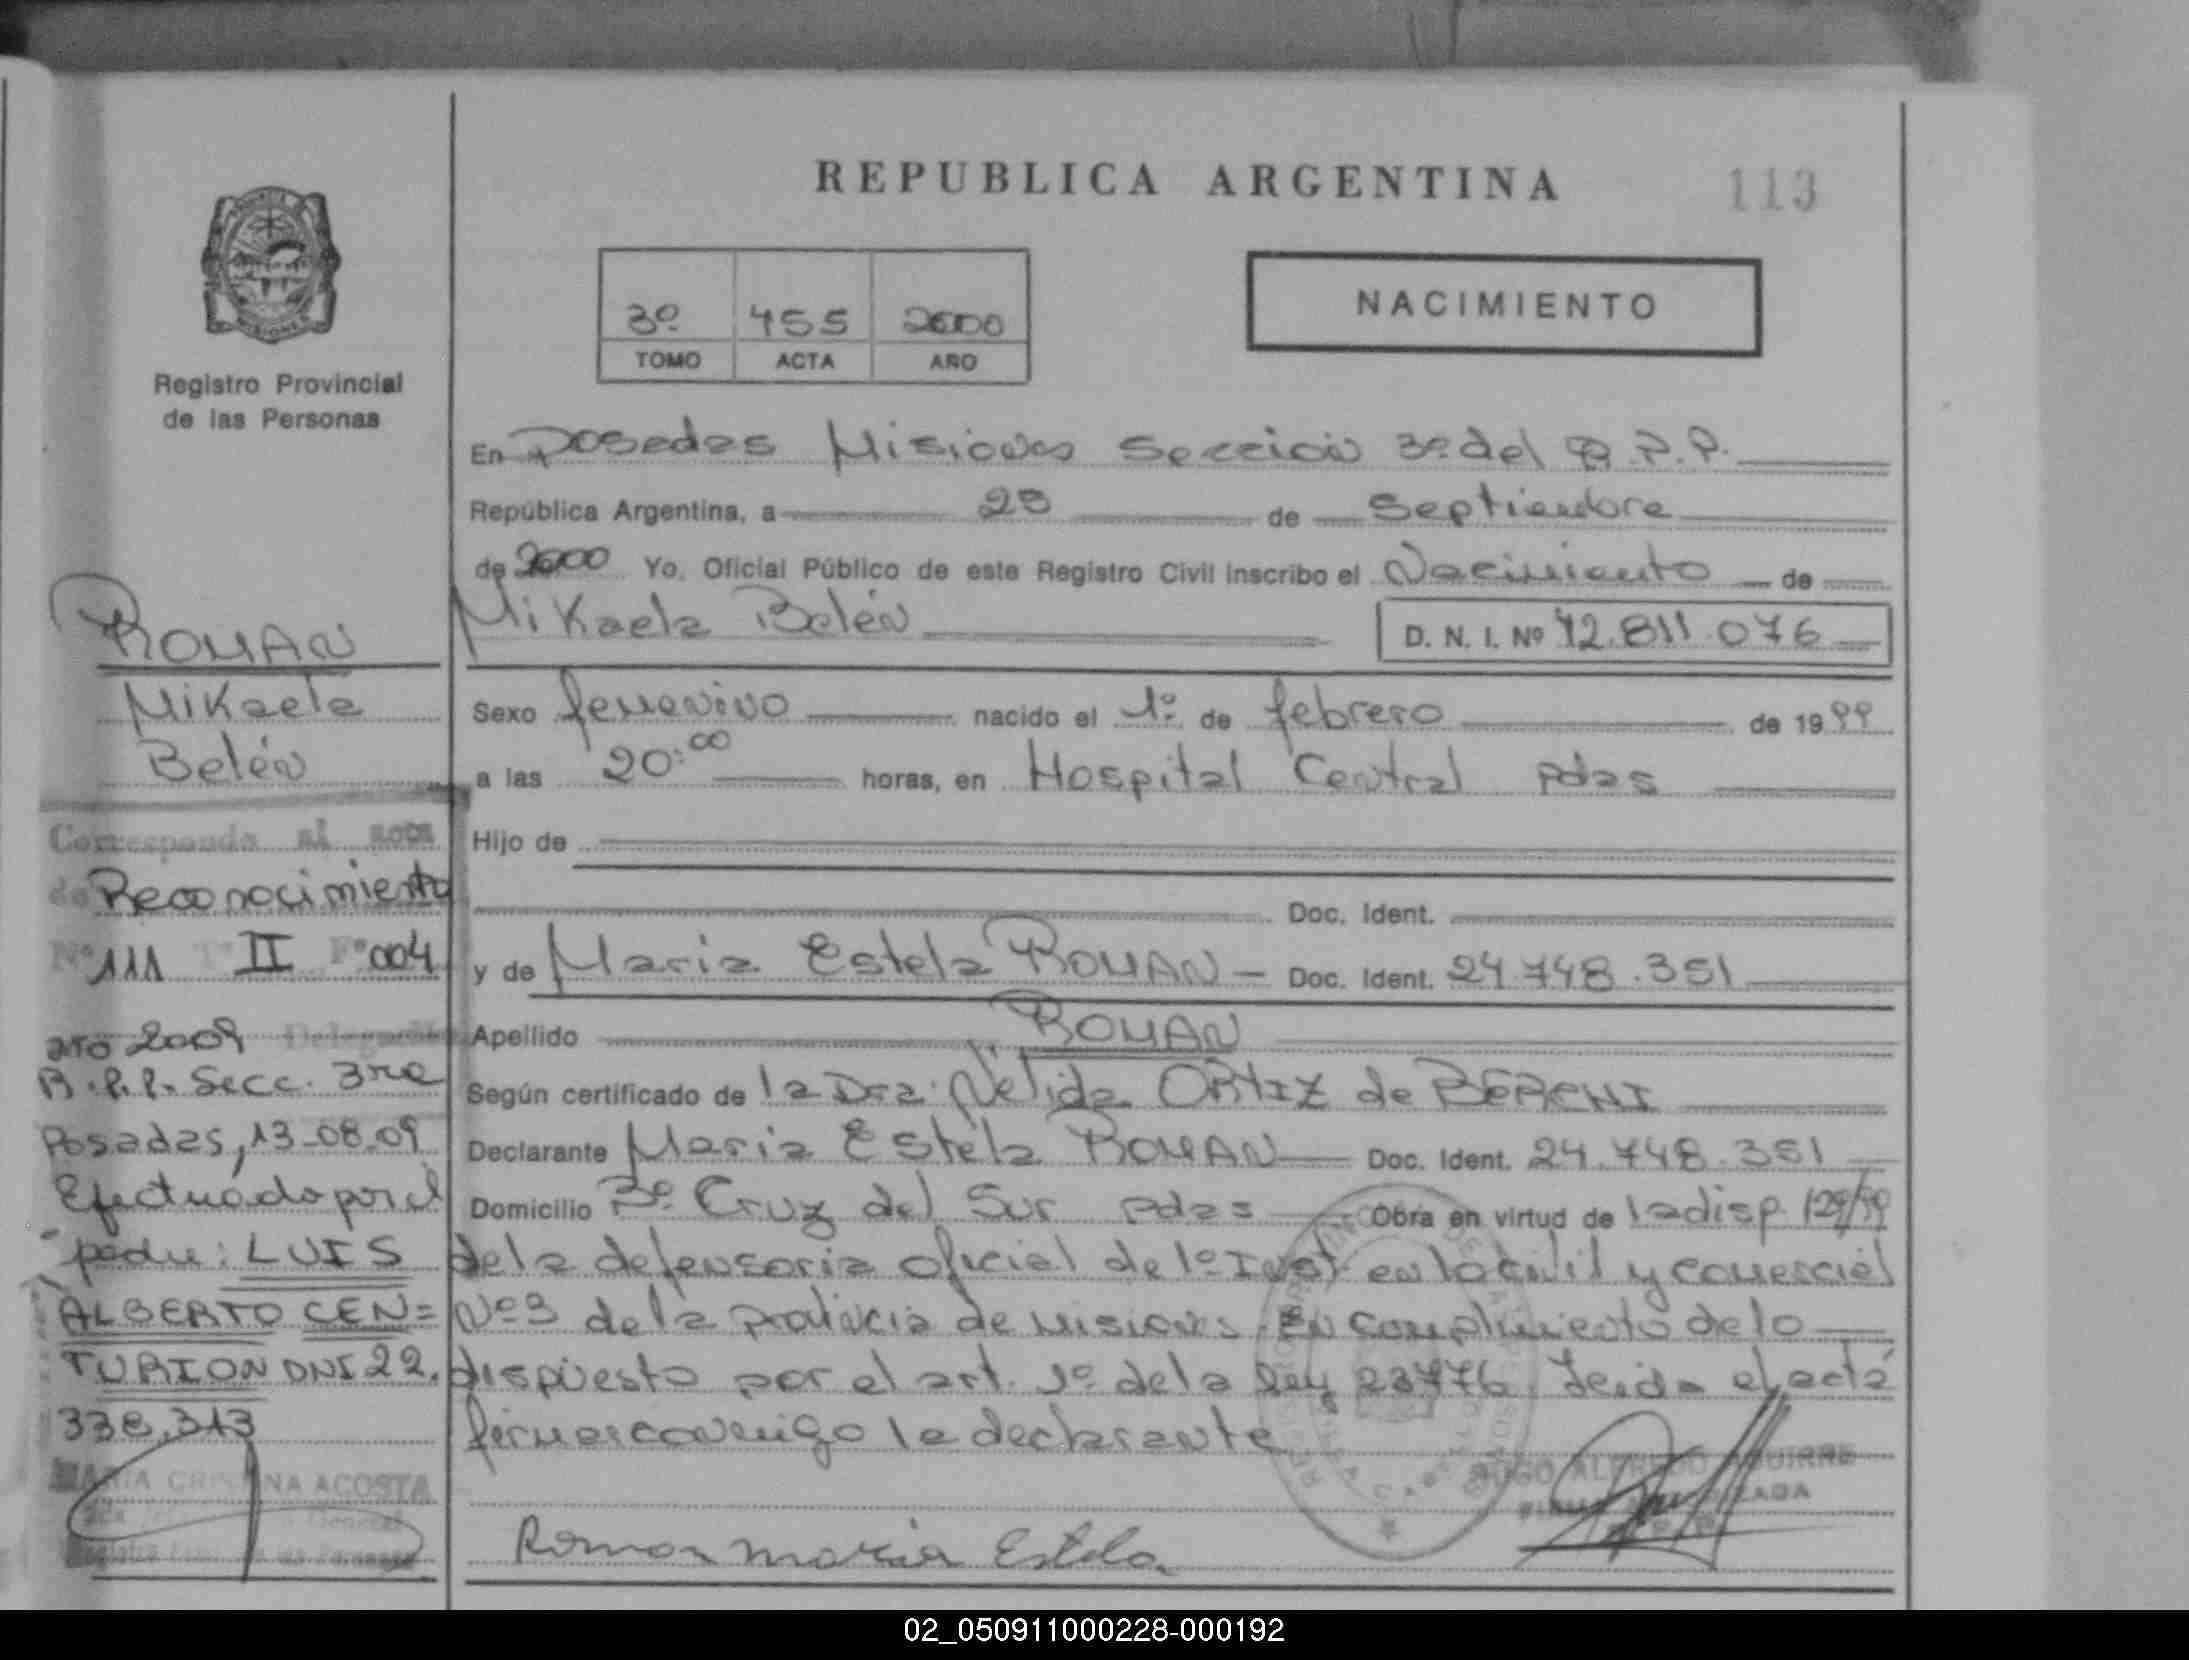 REPUBLICA ARGENTINA
113
3º 455 2000
TOMO ACTA AÑO
NACIMIENTO
Registro Provincial
de las Personas
ROMAN
Mikaela
Belén
Corresponde al acta
de Reconocimiento
Nº 111 Tº II Fº 004
año 2009 Delegación
R.P.P. Secc. 3ra
Posadas, 13-08-09
Efectuado por el
padre: LUIS
ALBERTO CEN=
TURION DNI 22.
338.313
MARIA CRISTINA ACOSTA
En Posadas Misiones Sección 3º del R.P.P.
República Argentina, a 25 de Septiembre
de 2000 Yo, Oficial Público de este Registro Civil inscribo el Nacimiento de
Mikaela Belén D. N. I. Nº 42.811.076
Sexo femenino nacido el 1º de febrero de 1999
a las 20:00 horas, en Hospital Central Pdas
Hijo de
Doc. Ident.
y de Maria Estela ROMAN Doc. Ident. 24.748.351
Apellido ROMAN
Según certificado de la Dra. Nélida ORTIZ de
Declarante Maria Estela ROMAN Doc. Ident. 24.748.351
Domicilio Bº Cruz del Sur Pdas Obra en virtud de la disp. 129/99
de la defensoria oficial de 1º Inst en lo civil y comercial
Nº 3 de la provincia de misiones. En complimiento de lo
dispuesto por el art. 1º de la ley 23776. Leida el acta
firma conmigo la declarante
HUGO ALFREDO AGUIRRE
FIRMA AUTORIZADA
Roman maria Estela
02_050911000228-000192